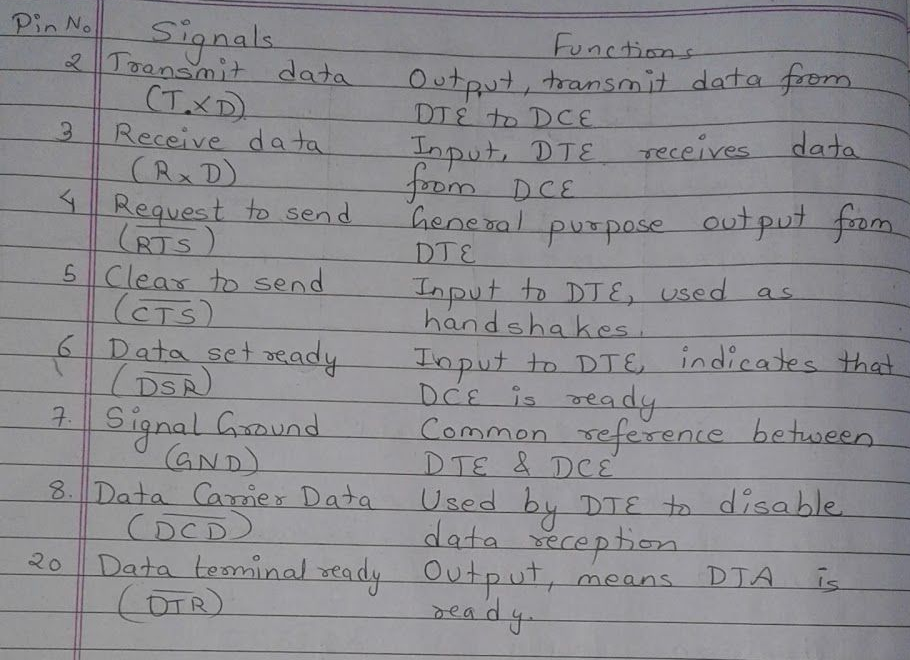 Pin No Signals Functions
2 Transmit data Output, transmit data from
(TXD) DTE to DCE
3 Receive data Input, DTE receives data
(RxD) from DCE
4 Request to send General purpose output from
(R̅T̅S̅) DTE
5 Clear to send Input to DTE, used as
(C̅T̅S̅) handshakes.
6 Data set ready Input to DTE, indicates that
(D̅S̅R̅) DCE is ready
7. Signal Ground Common reference between
(GND) DTE & DCE
8. Data Carrier Data Used by DTE to disable
(D̅C̅D̅) data reception
20 Data terminal ready Output, means DTA is
(D̅T̅R̅) ready.